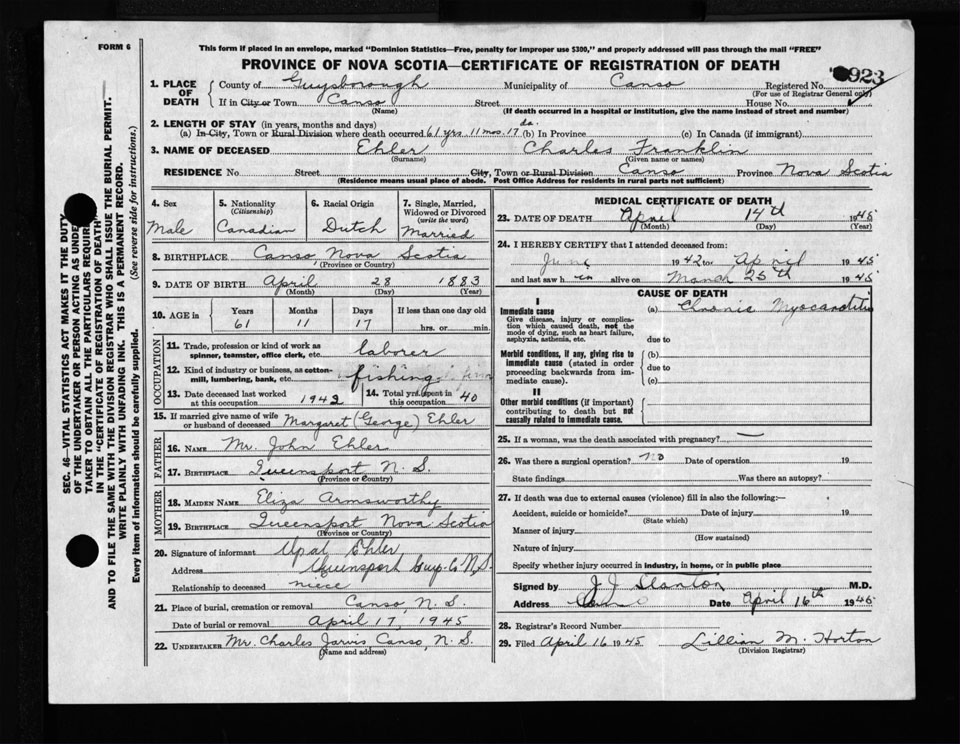 FORM 6
This form if placed in an envelope, marked "Dominion Statistics—Free, penalty for improper use $300," and properly addressed will pass through the mail "FREE"
PROVINCE OF NOVA SCOTIA—CERTIFICATE OF REGISTRATION OF DEATH
923
1. PLACE OF DEATH
County of Guysborough Municipality of Canso Registered No.
(For use of Registrar General only)
If in City or Town Canso Street House No.
(Name) (If death occurred in a hospital or institution, give the name instead of street and number)
2. LENGTH OF STAY (in years, months and days)
(a) In City, Town or Rural Division where death occurred 61 yrs. 11 mos. 17 da. (b) In Province (c) In Canada (if immigrant)
3. NAME OF DECEASED Ehler Charles Franklin
(Surname) (Given name or names)
RESIDENCE No. Street City, Town or Rural Division Canso Province Nova Scotia
(Residence means usual place of abode. Post Office Address for residents in rural parts not sufficient)
4. Sex
Male
5. Nationality
(Citizenship)
Canadian
6. Racial Origin
Dutch
7. Single, Married, Widowed or Divorced
(write the word)
Married
8. BIRTHPLACE Canso, Nova Scotia
(Province or Country)
9. DATE OF BIRTH April 28 1883
(Month) (Day) (Year)
10. AGE in Years Months Days If less than one day old
61 11 17 hrs. or min.
OCCUPATION
11. Trade, profession or kind of work as spinner, teamster, office clerk, etc. laborer
12. Kind of industry or business, as cotton-mill, lumbering, bank, etc. fishing
13. Date deceased last worked at this occupation 1942
14. Total yrs. spent in this occupation 40
15. If married give name of wife or husband of deceased Margaret (George) Ehler
FATHER
16. NAME Mr. John Ehler
17. BIRTHPLACE Queensport N. S.
(Province or Country)
MOTHER
18. MAIDEN NAME Eliza Armsworthy
19. BIRTHPLACE Queensport Nova Scotia
(Province or Country)
20. Signature of informant Opal Ehler
Address Queensport Guy. Co N.S.
Relationship to deceased niece
21. Place of burial, cremation or removal Canso, N. S.
Date of burial or removal April 17, 1945
22. UNDERTAKER Mr. Charles Jarvis Canso, N. S.
(Name and address)
MEDICAL CERTIFICATE OF DEATH
23. DATE OF DEATH April 14th 1945
(Month) (Day) (Year)
24. I HEREBY CERTIFY that I attended deceased from:
June 1942 to April 1945
and last saw him alive on March 25th 1945
CAUSE OF DEATH
I
Immediate cause
Give disease, injury or complication which caused death, not the mode of dying, such as heart failure, asphyxia, asthenia, etc.
(a) Chronic Myocarditis
due to
Morbid conditions, if any, giving rise to immediate cause (stated in order proceeding backwards from immediate cause).
(b)
due to
(c)
II
Other morbid conditions (if important) contributing to death but not causally related to immediate cause.
25. If a woman, was the death associated with pregnancy? —
26. Was there a surgical operation? no Date of operation 19
State findings Was there an autopsy?
27. If death was due to external causes (violence) fill in also the following:—
Accident, suicide or homicide? Date of injury 19
(State which)
Manner of injury
(How sustained)
Nature of injury
Specify whether injury occurred in industry, in home, or in public place
Signed by J. J. Stanton M.D.
Address Canso Date April 16th 1945
28. Registrar's Record Number
29. Filed April 16 1945 Lillian M. Horton
(Division Registrar)
SEC. 46—VITAL STATISTICS ACT MAKES IT THE DUTY
OF THE UNDERTAKER OR PERSON ACTING AS UNDER-
TAKER TO OBTAIN ALL THE PARTICULARS REQUIRED
IN THE "CERTIFICATE OF REGISTRATION OF DEATH"
AND TO FILE THE SAME WITH THE DIVISION REGISTRAR WHO SHALL ISSUE THE BURIAL PERMIT.
WRITE PLAINLY WITH UNFADING INK. THIS IS A PERMANENT RECORD.
Every item of Information should be carefully supplied. (See reverse side for instructions.)